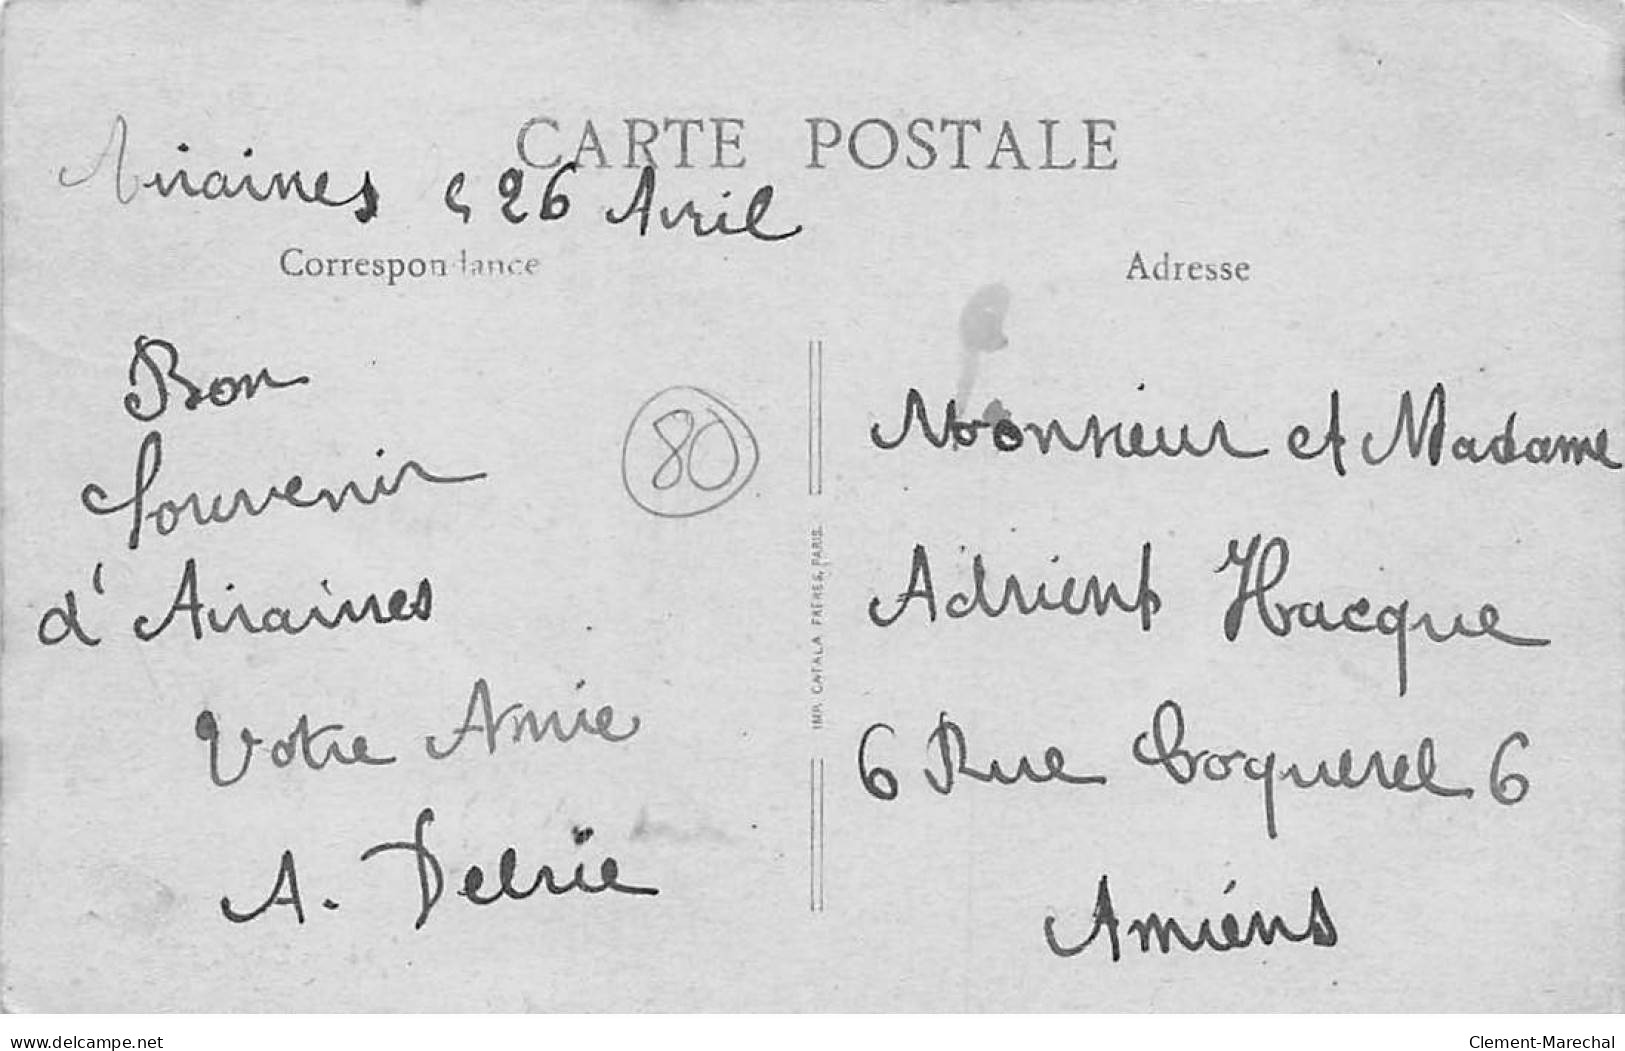 CARTE POSTALE
Airaines 26 Avril
Correspondance
Bon
Souvenir
d'Airaines
Votre Amie
A. Delrïe
80
IMP. CATALA FRÈRES, PARIS.
Adresse
Monsieur et Madame
Adrient Hacque
6 Rue Coquerel 6
Amiéns
www.delcampe.net
Clement-Marechal